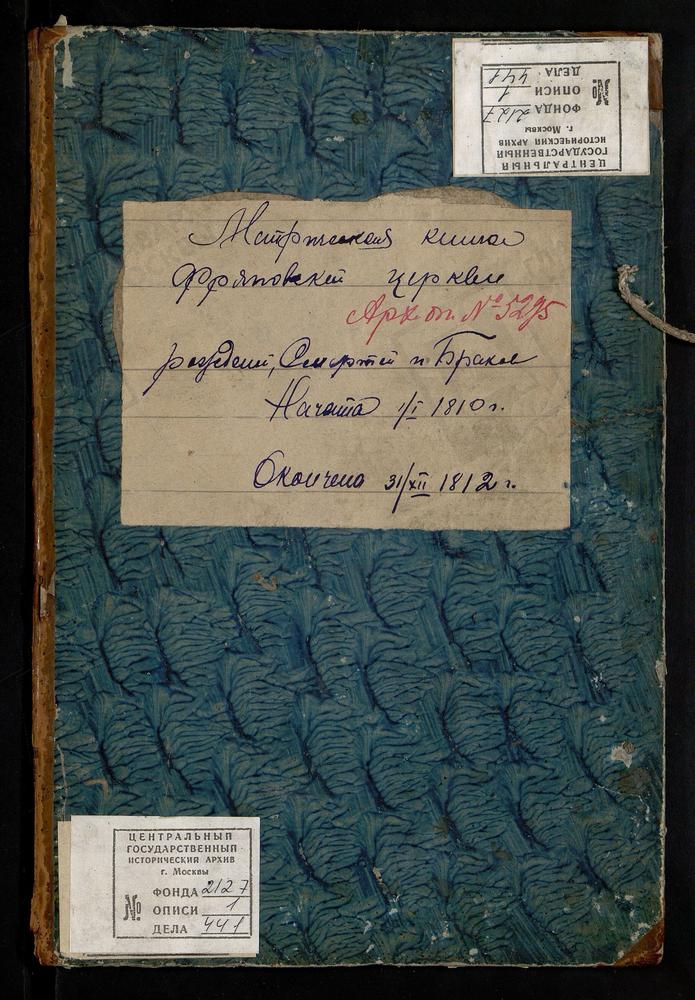 ЦЕНТРАЛЬНЫЙ
ГОСУДАРСТВЕННЫЙ
ИСТОРИЧЕСКИЙ АРХИВ
г. Москвы
№
ФОНДА 2127
ОПИСИ 1
ДЕЛА 441
Метрическая книга
Фряновской церкви
Арх. оп. № 5295
рождений, Смертей и Браков
Начата 1/I 1810 г.
Окончено 31/XII 1812 г.
ЦЕНТРАЛЬНЫЙ
ГОСУДАРСТВЕННЫЙ
ИСТОРИЧЕСКИЙ АРХИВ
г. Москвы
№
ФОНДА 2127
ОПИСИ 1
ДЕЛА 441